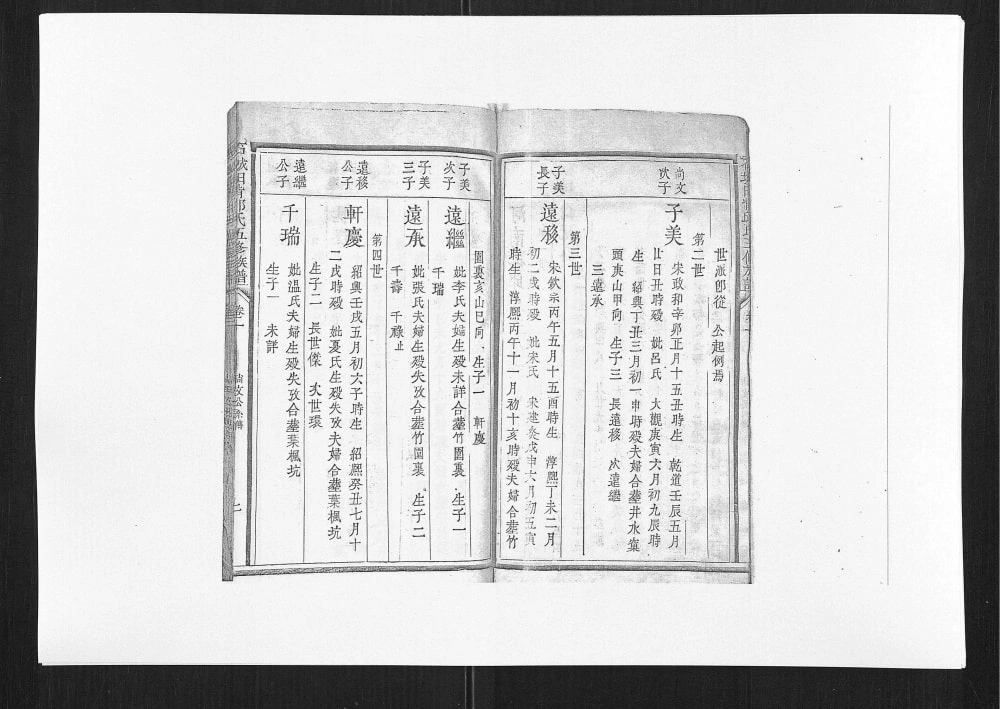 世派卽從 公起例焉
第二世
尚文次子
子美
宋政和辛卯正月十五丑時生 乾道壬辰五月
廿日丑時殁 妣呂氏 大觀庚寅六月初九辰時
生 紹興丁丑三月初一申時殁夫婦合塟井水窠
頭庚山甲向 生子三 長遠移 次遠繼
三遠承
第三世
子美長子
遠移
宋欽宗丙午五月十五酉時生 淳熙丁未二月
初二戌時殁 妣宋氏 宋建炎戊申六月初五寅
時生 淳熙丙午十一月初十亥時殁夫婦合塟竹
園裏亥山巳向 生子一 軒慶
子美次子
遠繼
妣李氏夫婦生殁未詳合塟竹園裏 生子一
千瑞
子美三子
遠承
妣張氏夫婦生殁失攷合塟竹園裏 生子二
千壽 千祿止
第四世
遠移公子
軒慶
紹興壬戌五月初六子時生 紹熙癸丑七月十
二戌時殁 妣夏氏生殁失攷夫婦合塟葉楓坑
生子二 長世傑 次世環
遠繼公子
千瑞
妣溫氏夫婦生殁失攷合塟葉楓坑
生子一 未詳
氏五修族譜
卷一